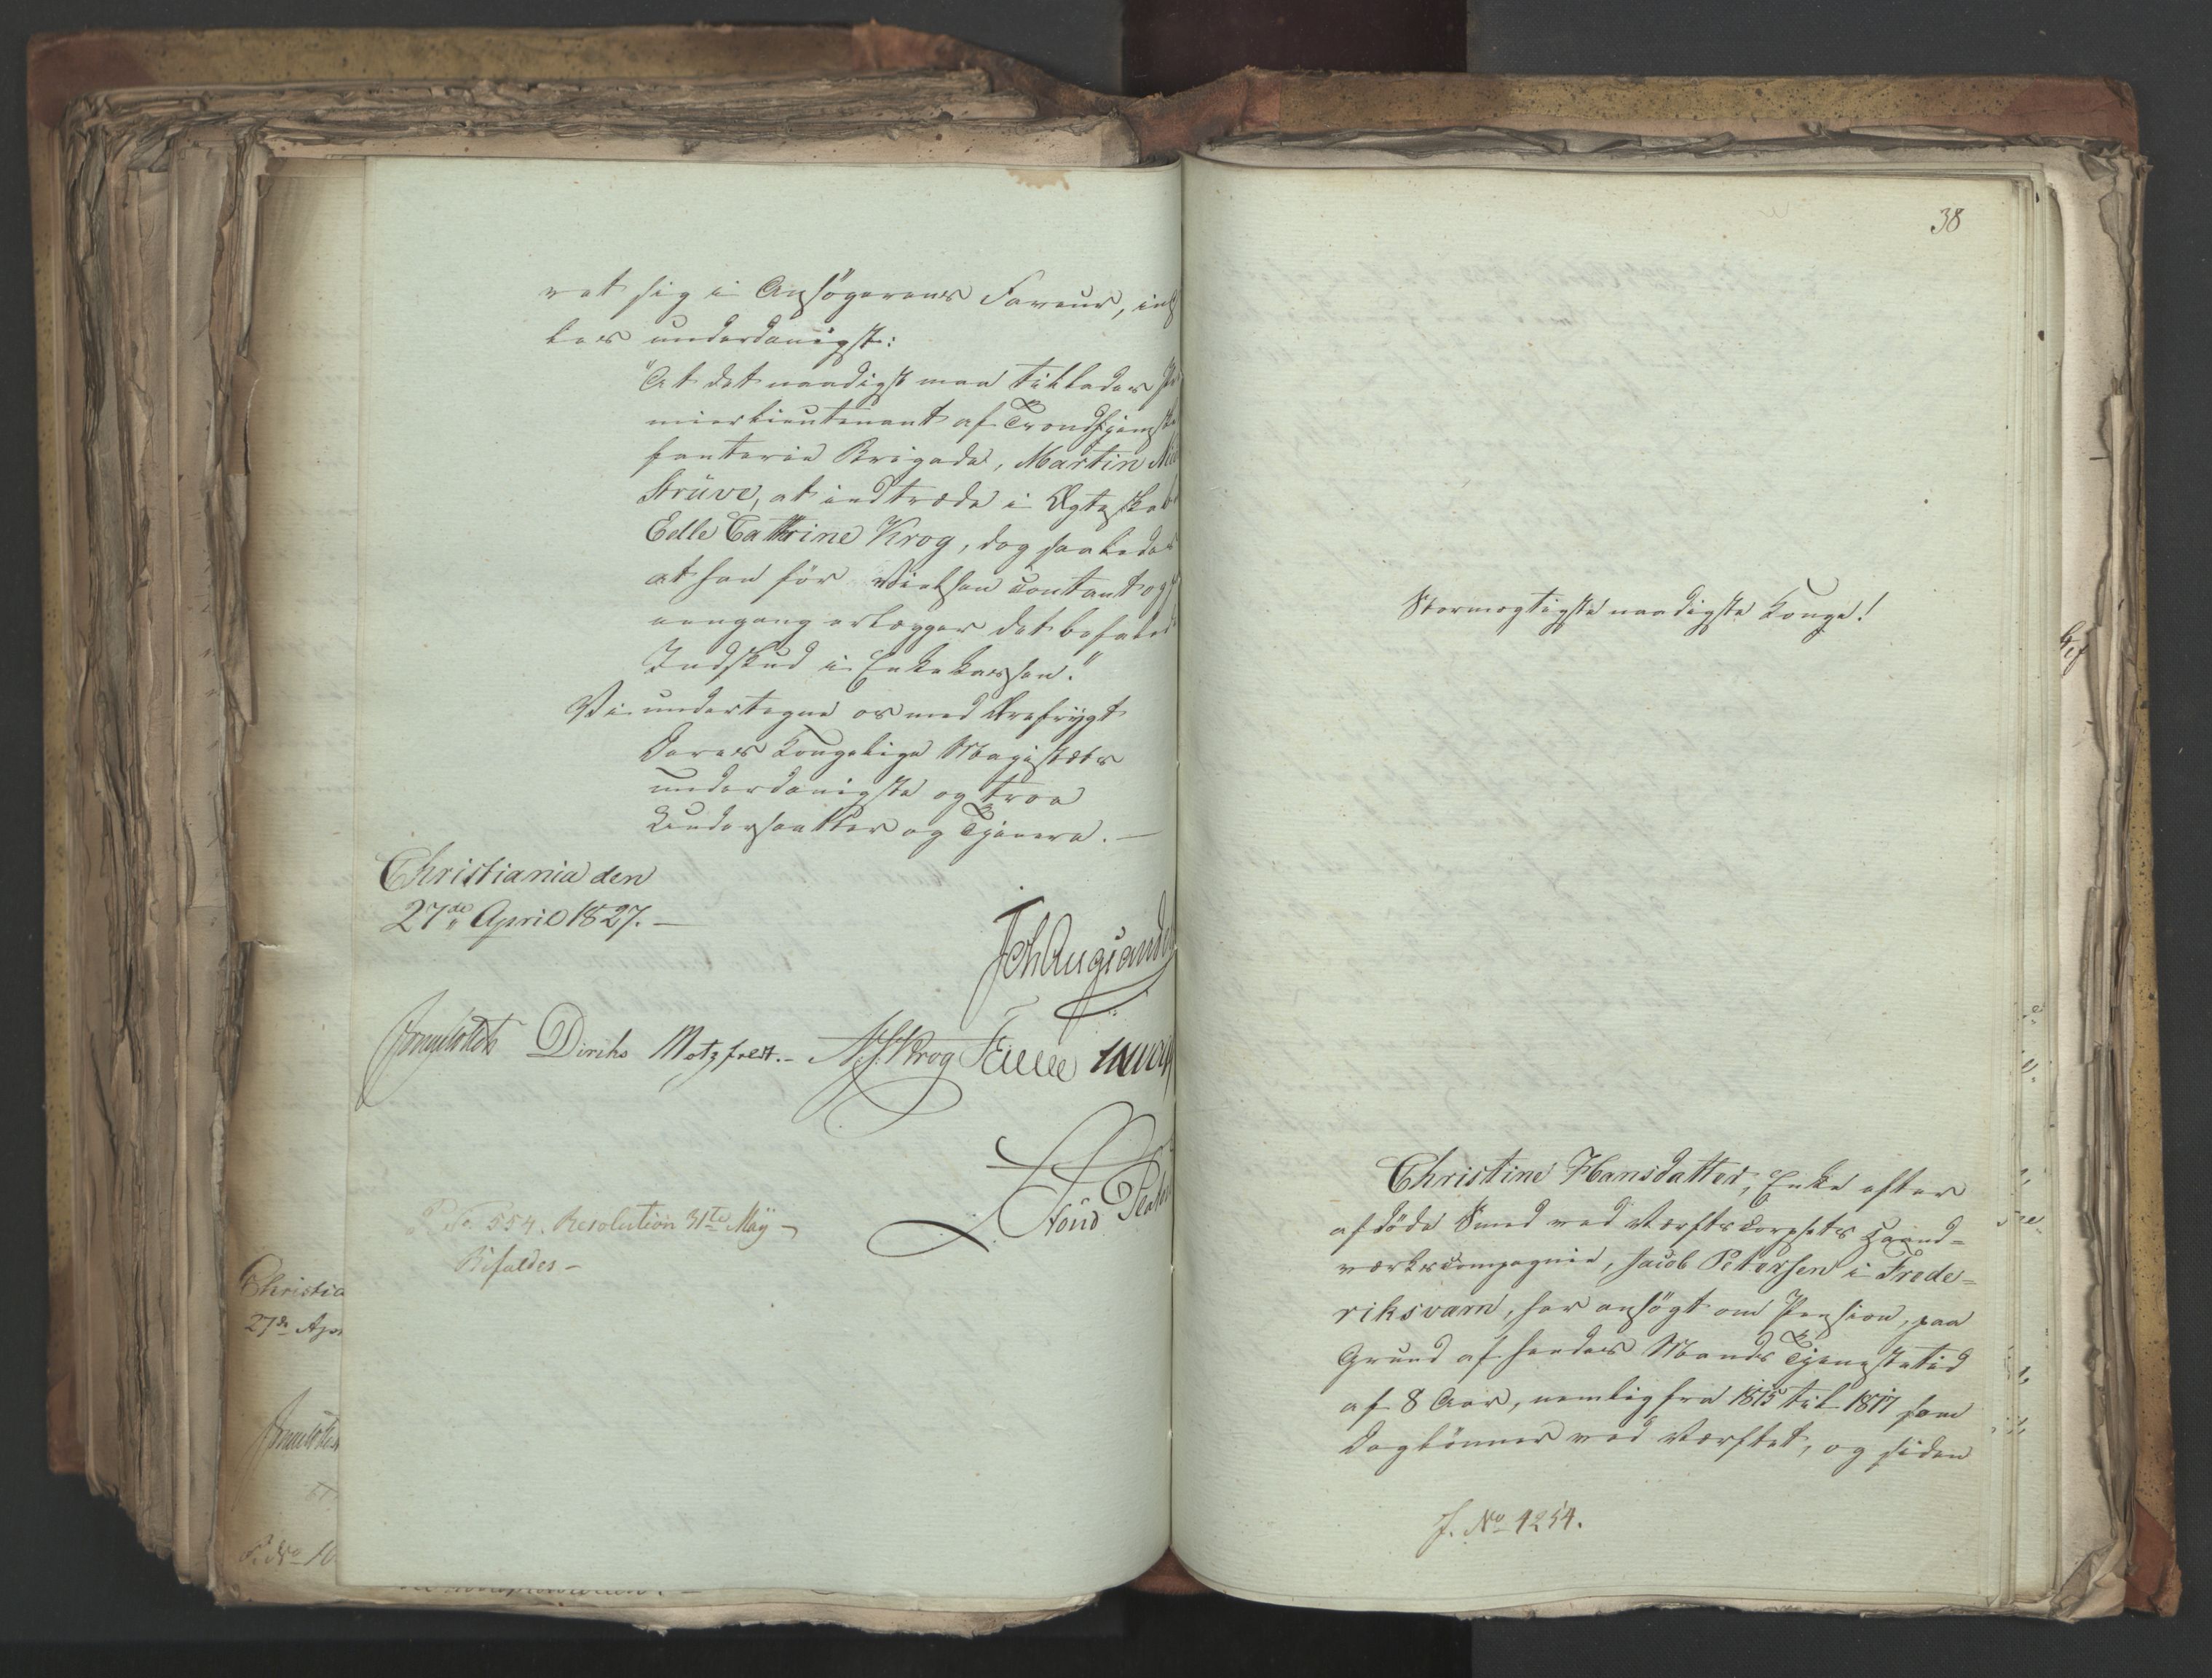 ret sig i Ansøgerens Faveur, ind
les underdanigst:
"At det naadigst maa tillades Pr
mierlieutenant af Trondhjemske
fanterie Brigade, Martin
Strüve, at indtræde i Ægteskab
Eelle Cathrine Krog, dog saaledes
at han før Vielsen contant og
eengang erlægger det befalede
Indskud i Enkekassen."
Vi undertegne os med Ærefrygt
Deres Kongelige Majestæts
underdanigste og troe
Undersaatter og Tjenere. —
Christiania den
27de April 1827. —
Joh Aug Sande
Diriks Motzfeldt. - N. J. Krog
P. No 554. Resolution 31te May -
Bifaldes -
38
Stormægtigste naadigste Konge!
Christine Hansdatter, Enke efter
afdøde Smed ved Værftscorpsets Haand=
værkscompagnie, Jacob Petersen i Frede=
riksværn, har ansøgt om Pension, paa
Grund af hendes Mands Tjenestetid
af 8 Aar, nemlig fra 1815 til 1817 som
Daglønner ved Værftet, og siden
J. No 1254.
Christia
27de Apr